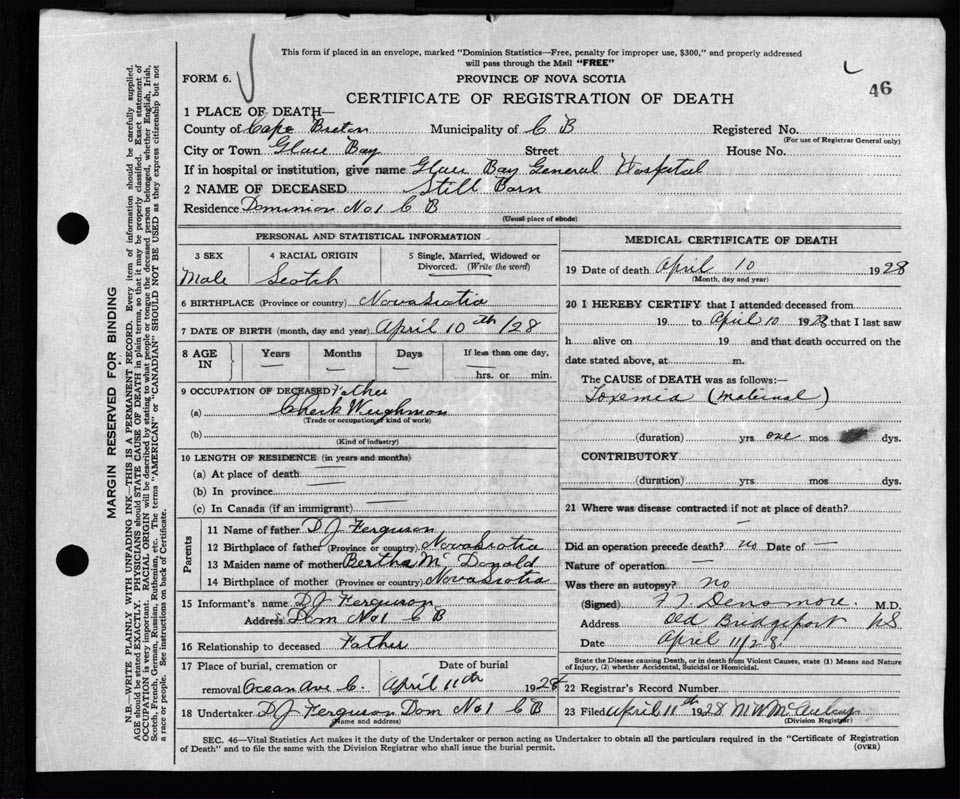 This form if placed in an envelope, marked "Dominion Statistics—Free, penalty for improper use, $300," and properly addressed
will pass through the Mail "FREE"
FORM 6.
PROVINCE OF NOVA SCOTIA
46
CERTIFICATE OF REGISTRATION OF DEATH
1 PLACE OF DEATH—
County of Cape Breton Municipality of C B Registered No.
(For use of Registrar General only)
City or Town Glace Bay Street House No.
If in hospital or institution, give name Glace Bay General Hospital
2 NAME OF DECEASED Still Born
Residence Dominion No 1 C B
(Usual place of abode)
PERSONAL AND STATISTICAL INFORMATION
3 SEX 4 RACIAL ORIGIN 5 Single, Married, Widowed or
Divorced. (Write the word)
Male Scotch
6 BIRTHPLACE (Province or country) Nova Scotia
7 DATE OF BIRTH (month, day and year) April 10th /28
8 AGE IN Years Months Days If less than one day,
— — — —
hrs. or min.
9 OCCUPATION OF DECEASED Father
(a) Check Weighman
(Trade or occupation or kind of work)
(b)
(Kind of industry)
10 LENGTH OF RESIDENCE (in years and months)
(a) At place of death —
(b) In province —
(c) In Canada (if an immigrant) —
Parents
11 Name of father D J Ferguson
12 Birthplace of father (Province or country) Nova Scotia
13 Maiden name of mother Bertha McDonald
14 Birthplace of mother (Province or country) Nova Scotia
15 Informant's name D J Ferguson
Address Dom No 1 C B
16 Relationship to deceased Father
17 Place of burial, cremation or Date of burial
removal Ocean Ave C. April 11th 1928
18 Undertaker D J Ferguson Dom No 1 C B
(Name and address)
MEDICAL CERTIFICATE OF DEATH
19 Date of death April 10 1928
(Month, day and year)
20 I HEREBY CERTIFY that I attended deceased from
19 to April 10 1928 that I last saw
h alive on 19 and that death occurred on the
date stated above, at m.
The CAUSE OF DEATH was as follows:—
Toxemia (maternal)
(duration) yrs one mos dys.
CONTRIBUTORY
(duration) yrs mos dys.
21 Where was disease contracted if not at place of death?
—
Did an operation precede death? no Date of —
Nature of operation —
Was there an autopsy? no
(Signed) Densmore. M.D.
Address Old Bridgeport NS
Date April 11/28
State the Disease causing Death, or in death from Violent Causes, state (1) Means and Nature
of Injury, (2) whether Accidental, Suicidal or Homicidal.
22 Registrar's Record Number
23 Filed April 11th 1928 M W McAulay
(Division Registrar)
SEC. 46—Vital Statistics Act makes it the duty of the Undertaker or person acting as Undertaker to obtain all the particulars required in the "Certificate of Registration
of Death" and to file the same with the Division Registrar who shall issue the burial permit.
(OVER)
MARGIN RESERVED FOR BINDING
N.B.—WRITE PLAINLY WITH UNFADING INK—THIS IS A PERMANENT RECORD. Every item of information should be carefully supplied.
AGE should be stated EXACTLY. PHYSICIANS should STATE CAUSE OF DEATH in plain terms, so that it may be properly classified. Exact statement of
OCCUPATION is very important. RACIAL ORIGIN will be described by stating to what people or tongue the deceased person belonged, whether English, Irish,
Scotch, French, German, Russian, Ruthenian, etc. The terms "AMERICAN" or "CANADIAN" SHOULD NOT BE USED as they express citizenship but not
a race or people. See instructions on back of Certificate.